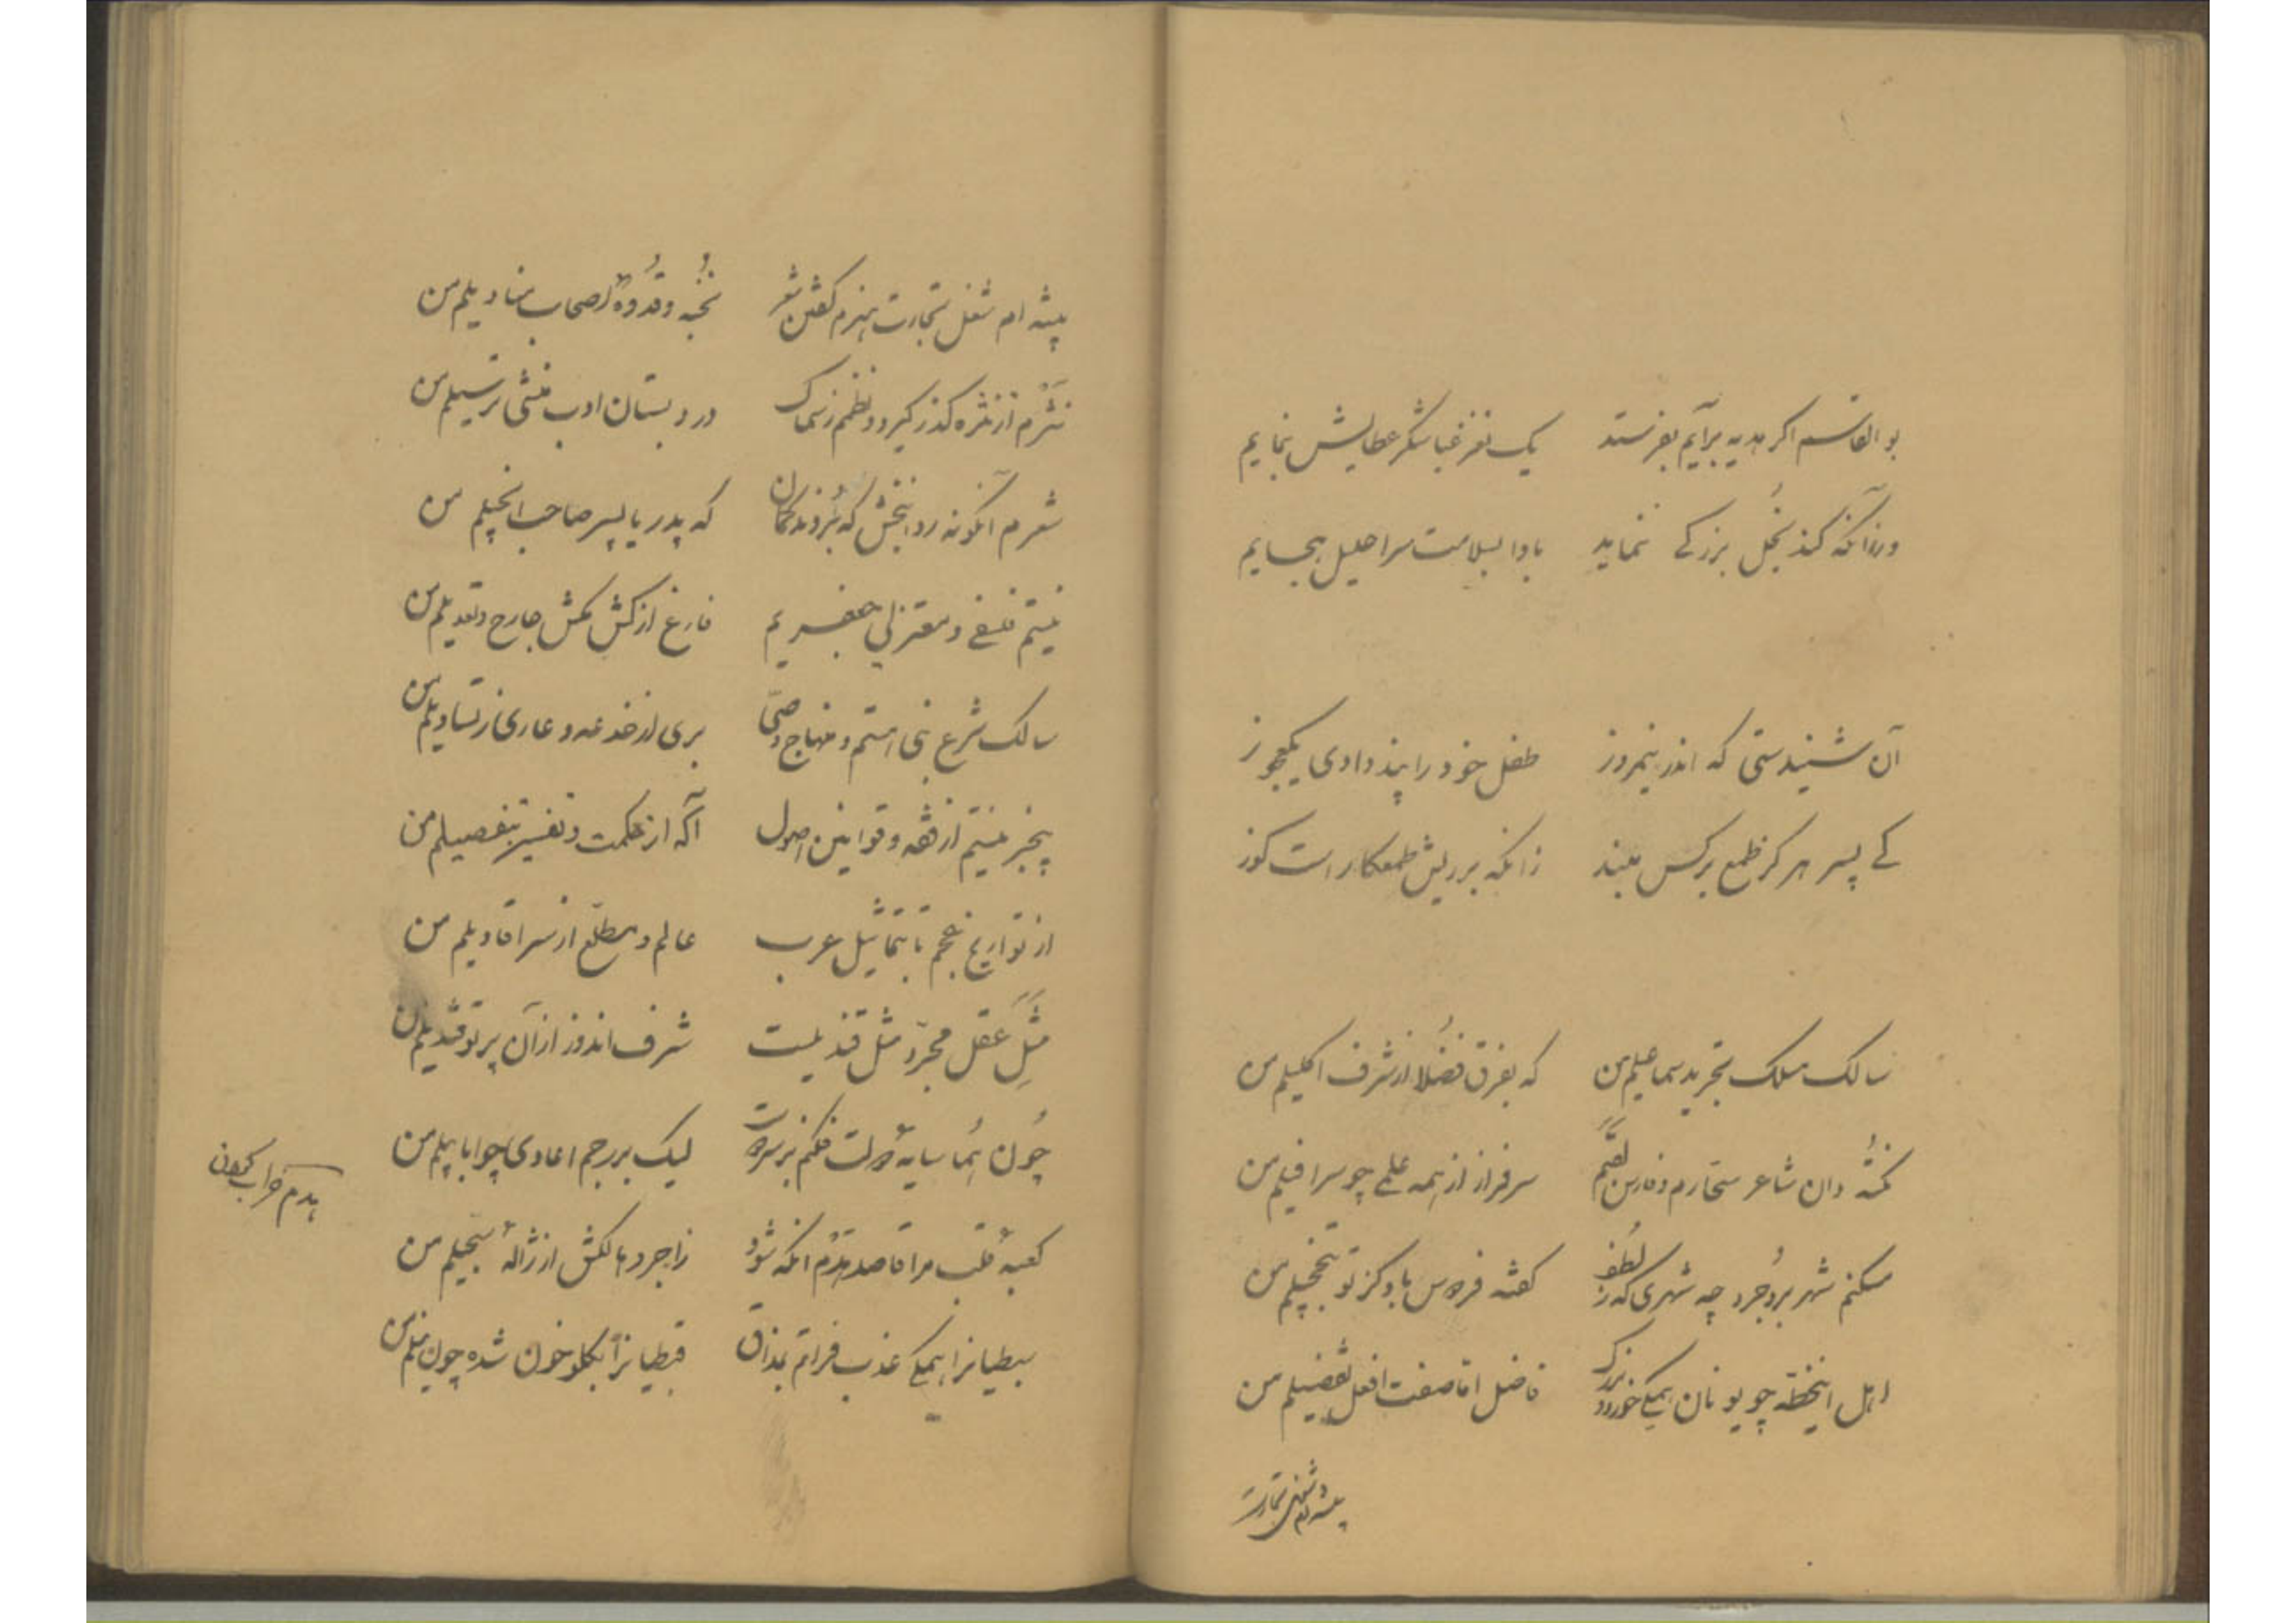 بوالقاسم اگر هدیه برایم بفرستد یک نفر غبا شکر عطایش بنمایم
ورزآنکه کند بخل بزرگی ننماید بادا بسلامت سر احلیل بجایم
آن شنیدستی که اندر نیمروز طفل خود را پند دادی یکعجوز
کی پسر هرگز طمع بر کس مبند زانکه بر ریش طمعکار است گوز
سالک مسلک تجرید سماعیلم من که بفرق فضلا از شرف اکلیلم من
نکته دان شاعر سحارم و فارس لقبم سرفراز از همه علمی چو سرافیلم من
مسکنم شهر بروجرد چه شهری که ز لطف گفته فردوس باو کز تو بتخجیلم من
اهل اینخطه چو یونان همگی خورد و بزرگ فاضل اما صفت افعل تفضیلم من
پیشه ام شغل تجارت
پیشه ام شغل تجارت هنرم گفتن شعر نخبه و قدوهٔ اصحاب منادیلم من
نثرم از نثره گذر گیرد و نظمم ز سماک در دبستان ادب منشی ترسیلم من
شعرم آنگونه روانبخش که بردند گمان که پدر یا پسر صاحب انجیلم من
نیستم فلسفی و معتزلی جعفریم فارغ از کش مکش جارح و تعدیلم من
سالک شرع نبی استم و منهاج وصی بری از خدعه و عاری ز تساویلم من
بیخبر نیستم از فقه و قوانین اصول آگه از حکمت و تفسیر بتفصیلم من
از تواریخ عجم تا بتماثیل عرب عالم و مطلع از سر اقاویلم من
مثل عقل مجرد مثل قندیلست شرف اندوز از آن پرتو قندیلم من
چون هما سایهٔ دولت فکنم بر سر دوست لیک بر رجم اعادی چو ابابیلم من
کعبهٔ قلب مرا قاصد هدم آنکه شود زاجر و هالکش از ژالهٔ سجیلم من
سبطیانرا همگی عذب فراتم بمذاق قبطیانرا بگلو خون شده چون نیلم من
هدم خراب کردن